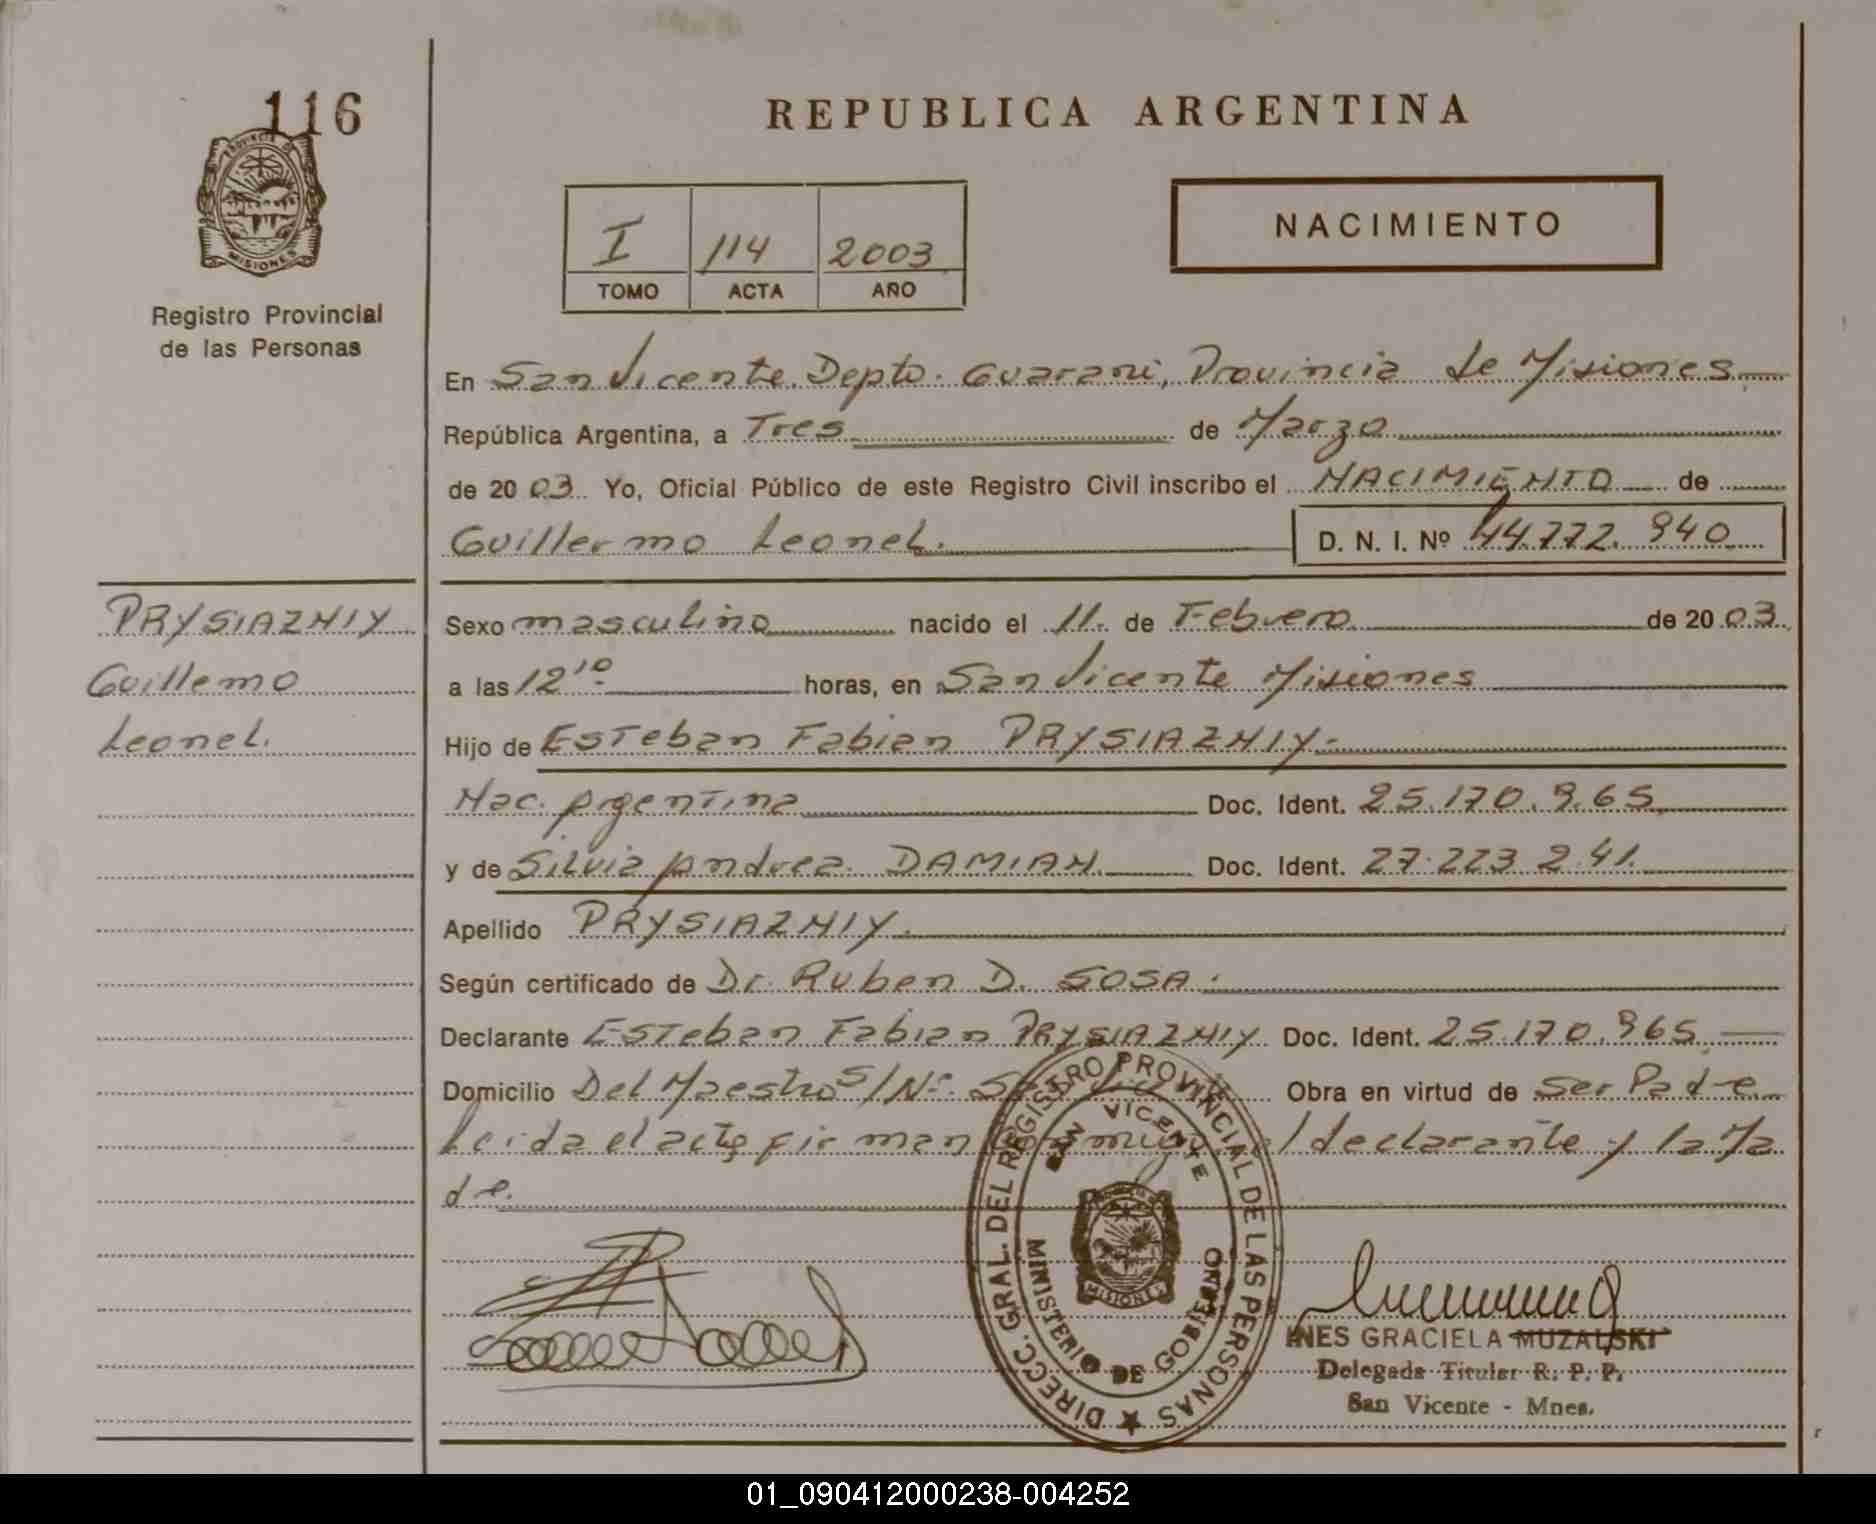 116
PROVINCIA DE
MISIONES
Registro Provincial
de las Personas
REPUBLICA ARGENTINA
I 114 2003
TOMO ACTA AÑO
NACIMIENTO
En San Vicente, Depto. Guarani, Provincia de Misiones
República Argentina, a Tres de Marzo
de 2003 Yo, Oficial Público de este Registro Civil inscribo el NACIMIENTO de
Guillermo Leonel. D. N. I. Nº 44.772.940
PRYSIAZNIY
Guillemo
Leonel.
Sexo masculino nacido el 11. de Febrero de 2003
a las 12¹⁰ horas, en San Vicente Misiones
Hijo de Esteban Fabian PRYSIAZNIY.
Nac. Argentina Doc. Ident. 25.170.965
y de Silvia Andrea. DAMIAN. Doc. Ident. 27.223.241.
Apellido PRYSIAZNIY.
Según certificado de Dr. Ruben D. SOSA.
Declarante Esteban Fabian PRYSIAZNIY Doc. Ident. 25.170.965
Domicilio Del Maestro S/Nº. San Obra en virtud de ser Padre
Leida el acta firman conmigo el declarante y la Ma
dre.
DIRECC. GRAL. DEL REGISTRO PROVINCIAL DE LAS PERSONAS
SAN VICENTE
MISIONES
MINISTERIO DE GOBIERNO
INES GRACIELA MUZALSKI
Delegada Titular R. P. P.
San Vicente - Mnes.
01_090412000238-004252